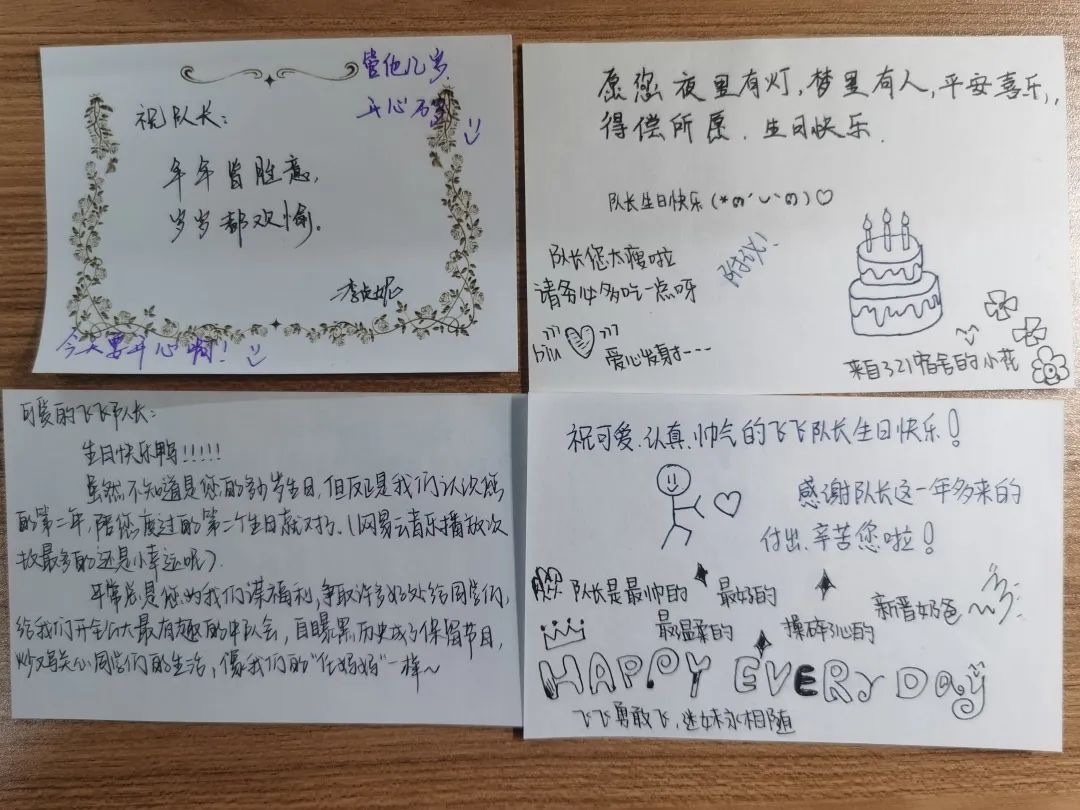 管他几岁,
开心万岁
祝队长:
年年皆胜意,
岁岁都欢愉。
今天要开心啊!
愿您夜里有灯,梦里有人,平安喜乐,
得偿所愿.生日快乐.
队长生日快乐
队长您太瘦啦
请务必多吃一点呀
附议!
biu
爱心发射---
来自321宿舍的小花
可爱的飞飞队长:
生日快乐鸭!!!!!
虽然不知道是您的多少岁生日,但反正是我们认识您
的第二年,陪您度过的第二个生日就对了、(网易云音乐播放次
数最多的还是小幸运呢)
平常总是您为我们谋福利,争取许多好处给同学们,
给我们开全公大最有趣的中队会,自曝黑历史成了保留节目,
时刻关心同学们的生活,像我们的“任妈妈”一样~
祝可爱.认真.帅气的飞飞队长生日快乐!
感谢队长这一年多来的
付出.辛苦您啦!
队长是最帅的
最好的
最温柔的
操碎了心的
新晋奶爸
HAPPY EVERY DAY
飞飞勇敢飞,迷妹永相随